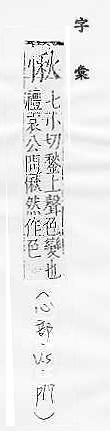 字彙
愀
七小切鍫上聲色變也
禮哀公問愀然作色
(心部.VS.